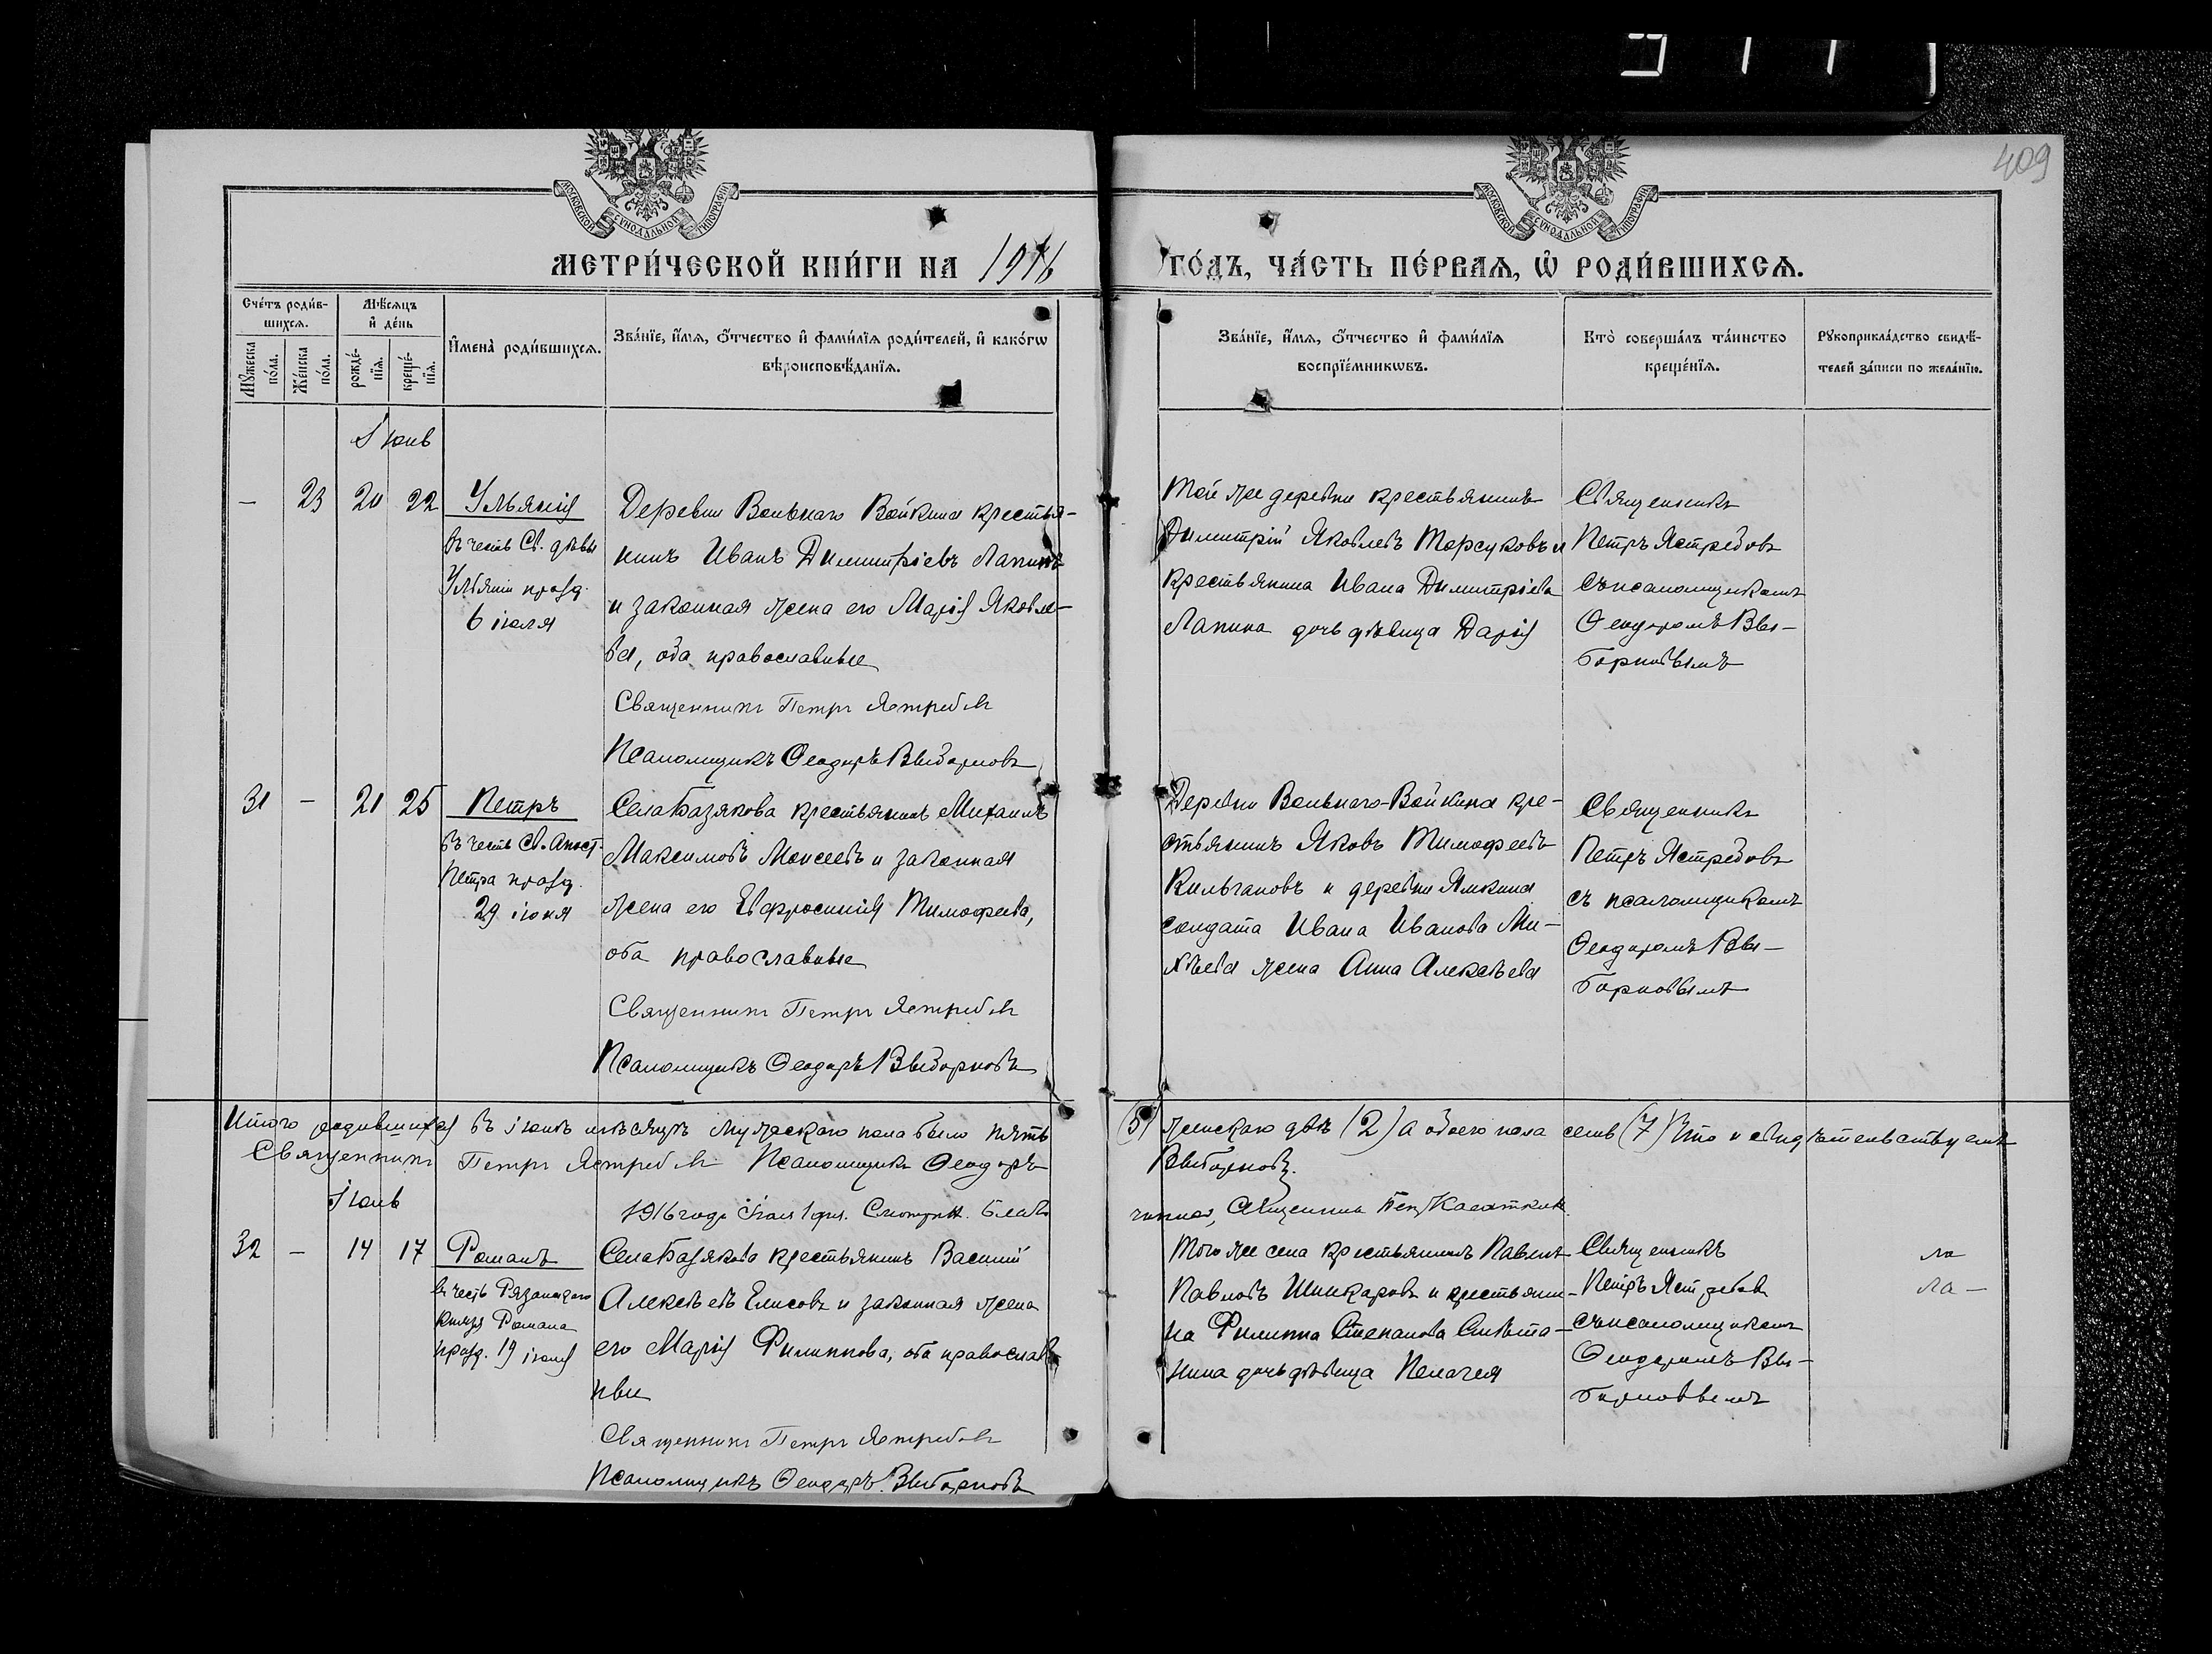 409
МОСКОВСКОЙ СѴНОДАЛЬНОЙ ТИПОГРАФІИ
МОСКОВСКОЙ СѴНОДАЛЬНОЙ ТИПОГРАФІИ
МЕТРИ́ЧЕСКОЙ КНИ́ГИ НА 1916 ГО́ДЪ, ЧА́СТЬ ПЕ́РВАѦ, Ѽ РОДИ́ВШИХСѦ.
Сче́тъ роди́в-
шихсѧ.
Мѣ́сѧцъ
и҆ де́нь
Мꙋжеска по́ла.
Же́нска по́ла.
рожде́-
нїѧ.
креще́-
нїѧ.
И҆мена̀ роди́вшихсѧ.
Зва́нїе, и҆́мѧ, ѻ҆́тчество и҆ фами́лїѧ роди́телей, и҆ како́гѡ
вѣроисповѣ́данїѧ.
Зва́нїе, и҆́мѧ, ѻ҆́тчество и҆ фами́лїѧ
воспрїе́мникѡвъ.
Кто̀ соверша́лъ та́инство
креще́нїѧ.
Рꙋкоприкла́дство свидѣ́-
телей за́писи по жела́нїю.
Іюнь
— 23 20 22 Ульянія
въ честь Св. дѣвы
Ульяніи празд.
6 іюля
Деревни Вольнаго Войкина крестья-
нинъ Иванъ Димитріевъ Лапинъ
и законная жена его Марія Яковле-
ва, оба православные
Священникъ Петръ Ястребовъ
Псаломщикъ Ѳеодоръ Выборновъ
Той же деревни крестьянинъ
Димитрій Яковлевъ Торсуковъ и
крестьянина Ивана Димитріева
Лапина дочь дѣвица Дарія
Священникъ
Петръ Ястребовъ
съ псаломщикомъ
Ѳеодоромъ Вы-
борновымъ
31 — 21 25 Петръ
въ честь Св. Апост.
Петра празд.
29 іюня
Села Базякова крестьянинъ Михаилъ
Максимовъ Моисеевъ и законная
жена его Евфросинія Тимофеева,
оба православные
Священникъ Петръ Ястребовъ
Псаломщикъ Ѳеодоръ Выборновъ
Деревни Вольнаго-Войкина кре-
стьянинъ Яковъ Тимофеевъ
Кильгановъ и деревни Ямкина
солдата Ивана Иванова Ми-
хѣева жена Анна Алексѣева
Священникъ
Петръ Ястребовъ
съ псаломщикомъ
Ѳеодоромъ Вы-
борновымъ
Итого родившихся въ іюнѣ мѣсяцѣ мужескаго пола было пять (5) женскаго двѣ (2) а обоего пола семь (7) Что и свидѣтельствуемъ
Священникъ Петръ Ястребовъ Псаломщикъ Ѳеодоръ Выборновъ.
1916 года Іюля 1 дня. Смотрѣн. Благо
чинный, Священникъ
Іюль
32 — 14 17 Романъ
въ честь Рязанскаго
князя Романа
празд. 19 іюля
Села Базякова крестьянинъ Василій
Алексѣевъ Елисовъ и законная жена
его Марія Филиппова, оба православ
ные
Священникъ Петръ Ястребовъ
Псаломщикъ Ѳеодоръ Выборновъ
Того же села крестьянинъ Павелъ
Павловъ Шинкаровъ и крестьяни-
на Филиппа Степанова Смѣта-
нина дочь дѣвица Пелагея
Священникъ
Петръ Ястребовъ
съ псаломщикомъ
Ѳеодоромъ Вы-
борновымъ